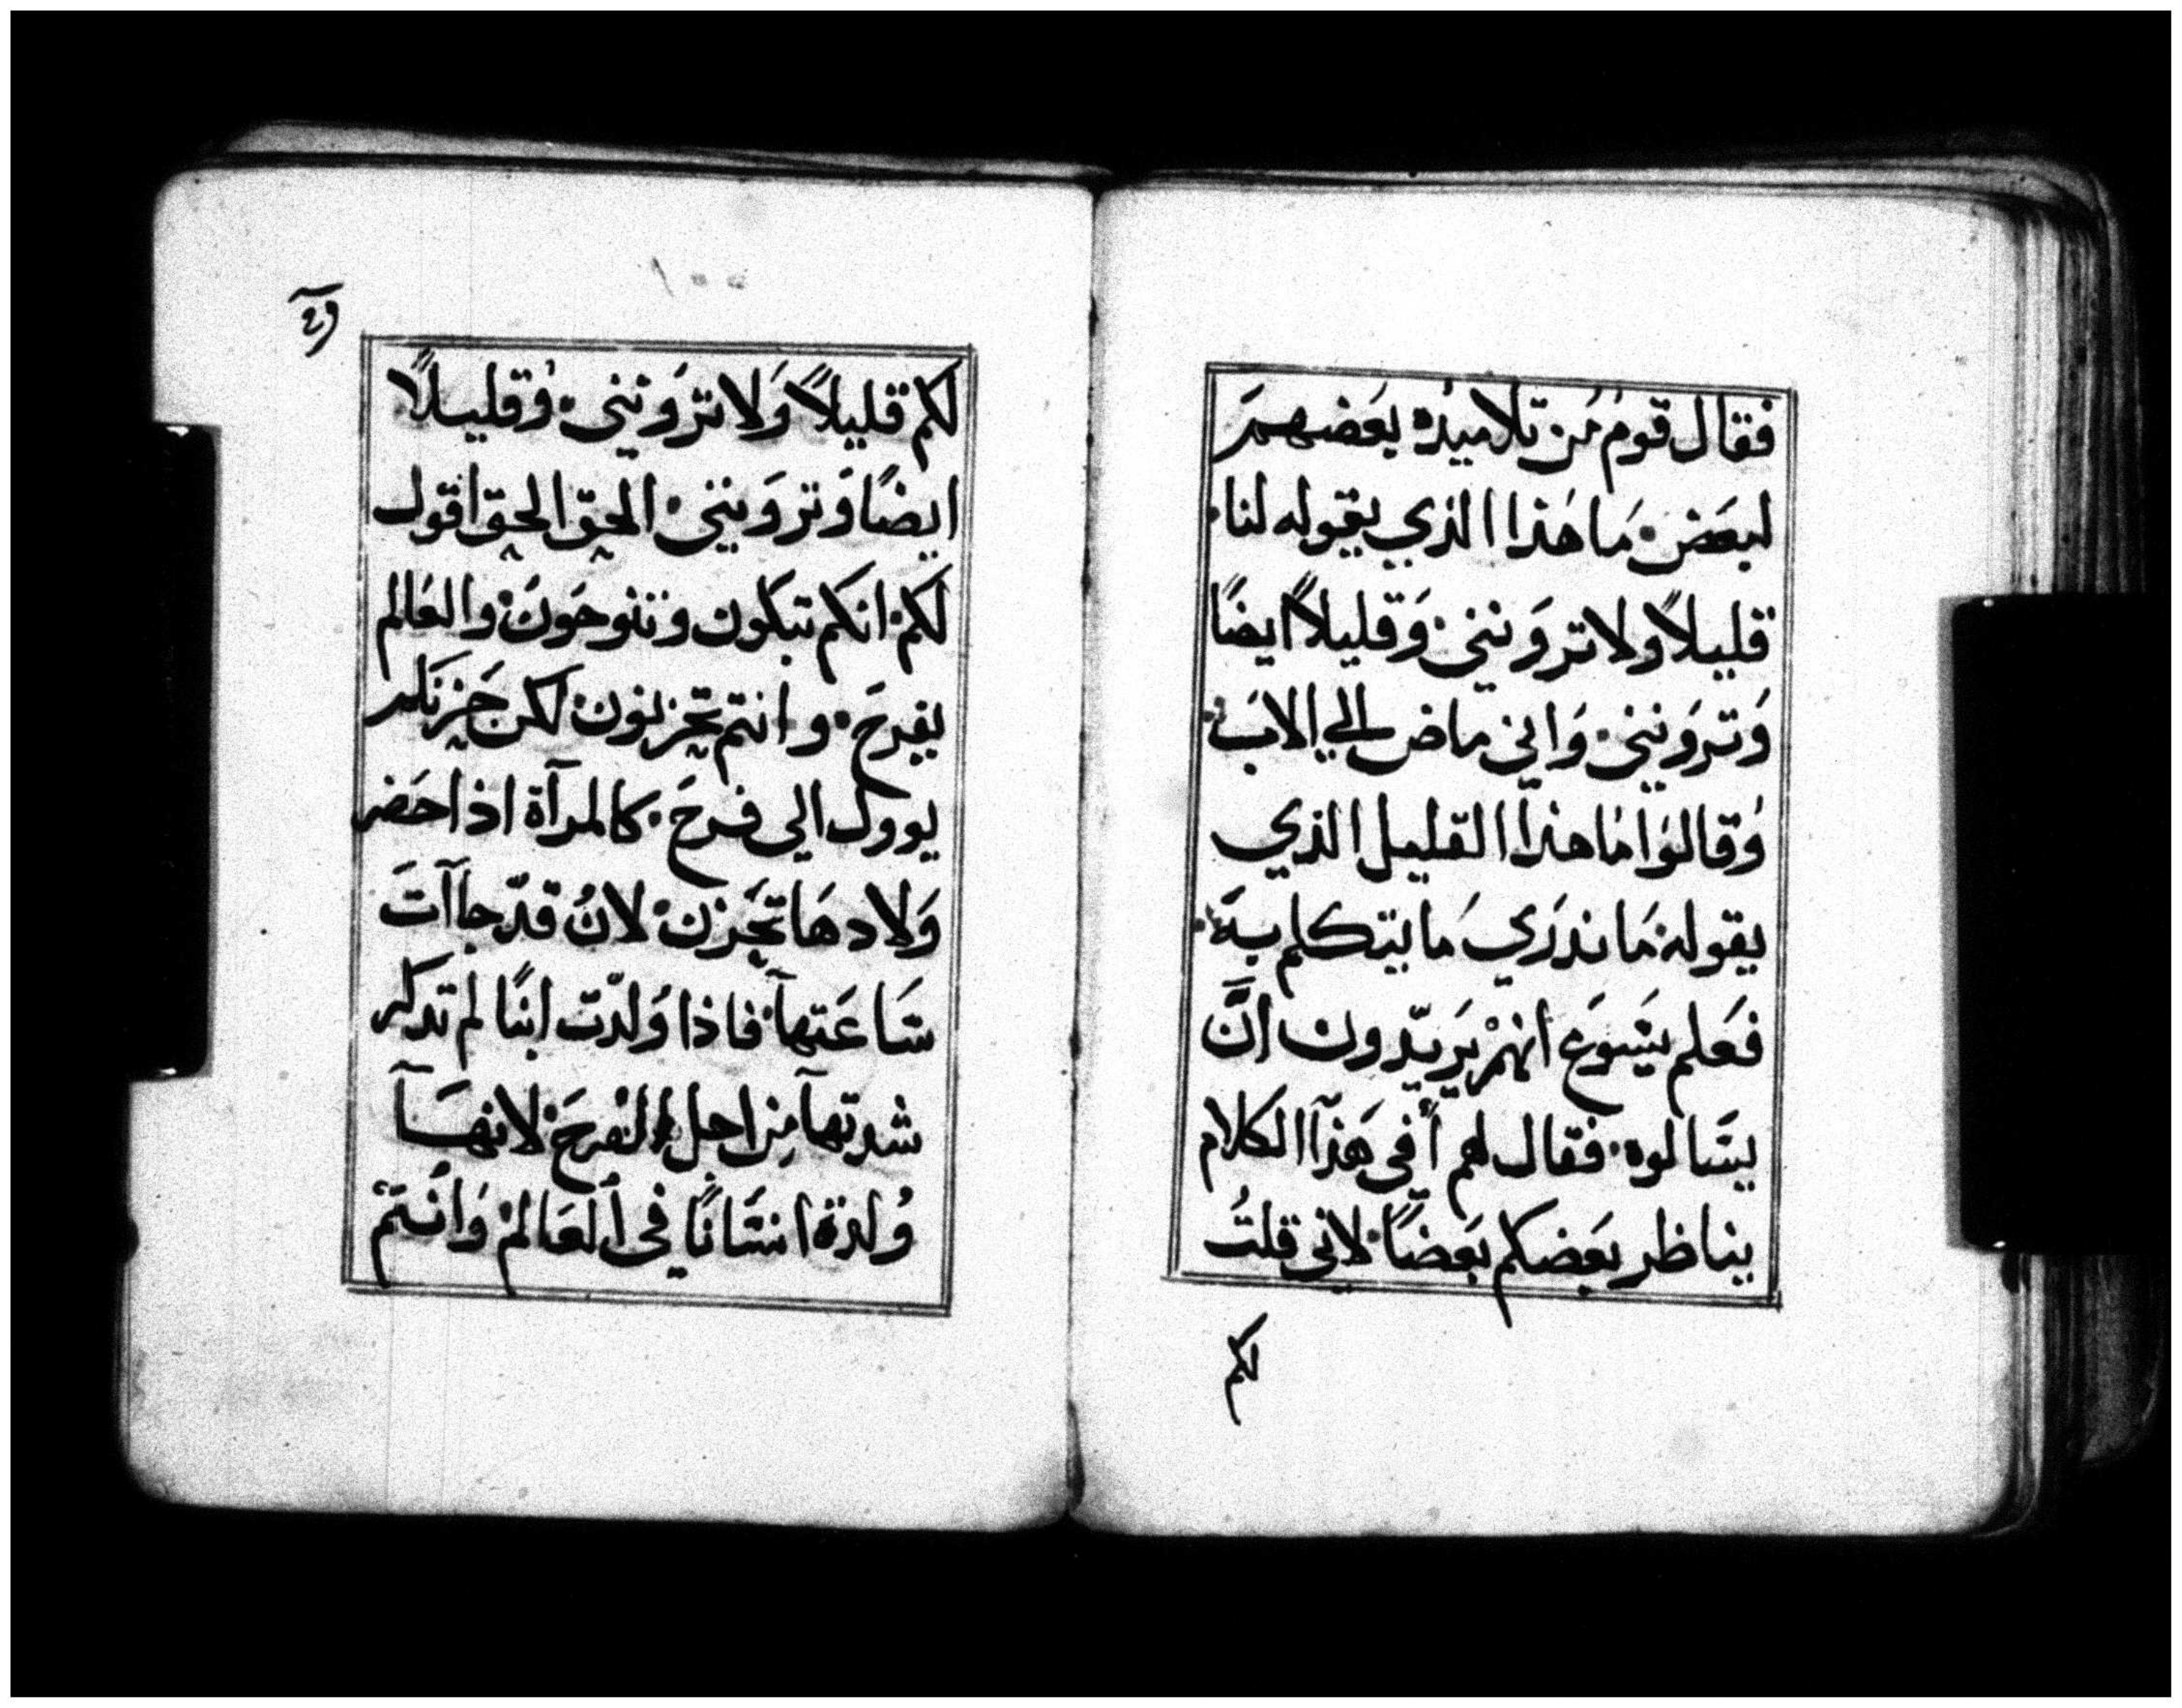 فقال قوم من تلاميده بعضهم
لبعض ما هذا الذي يقوله لنا
قليلاً ولا ترونني وقليلاً ايضًا
وترونني واني ماض الي الاب
وقالوا ما هذا القليل الذي
يقوله ما ندري ما يتكلم به
فعلم يسوع انهم يريدون ان
يسالوه فقال لهم أفي هذا الكلام
يناظر بعضكم بعضًا لاني قلت
لكم
لكم قليلاً ولا ترونني وقليلاً
ايضًا وترونني الحق الحق اقول
لكم انكم تبكون وتنوحون والعالم
يفرح وانتم تحزنون لكن حزنكم
يوول الي فرح كالمرآة اذا حضر
ولادها تحزن لان قد جاآت
ساعتها فاذا ولدت ابنًا لم تدكر
شدتها من اجل الفرح لانها
ولدة انسانًا في العالم وانتم